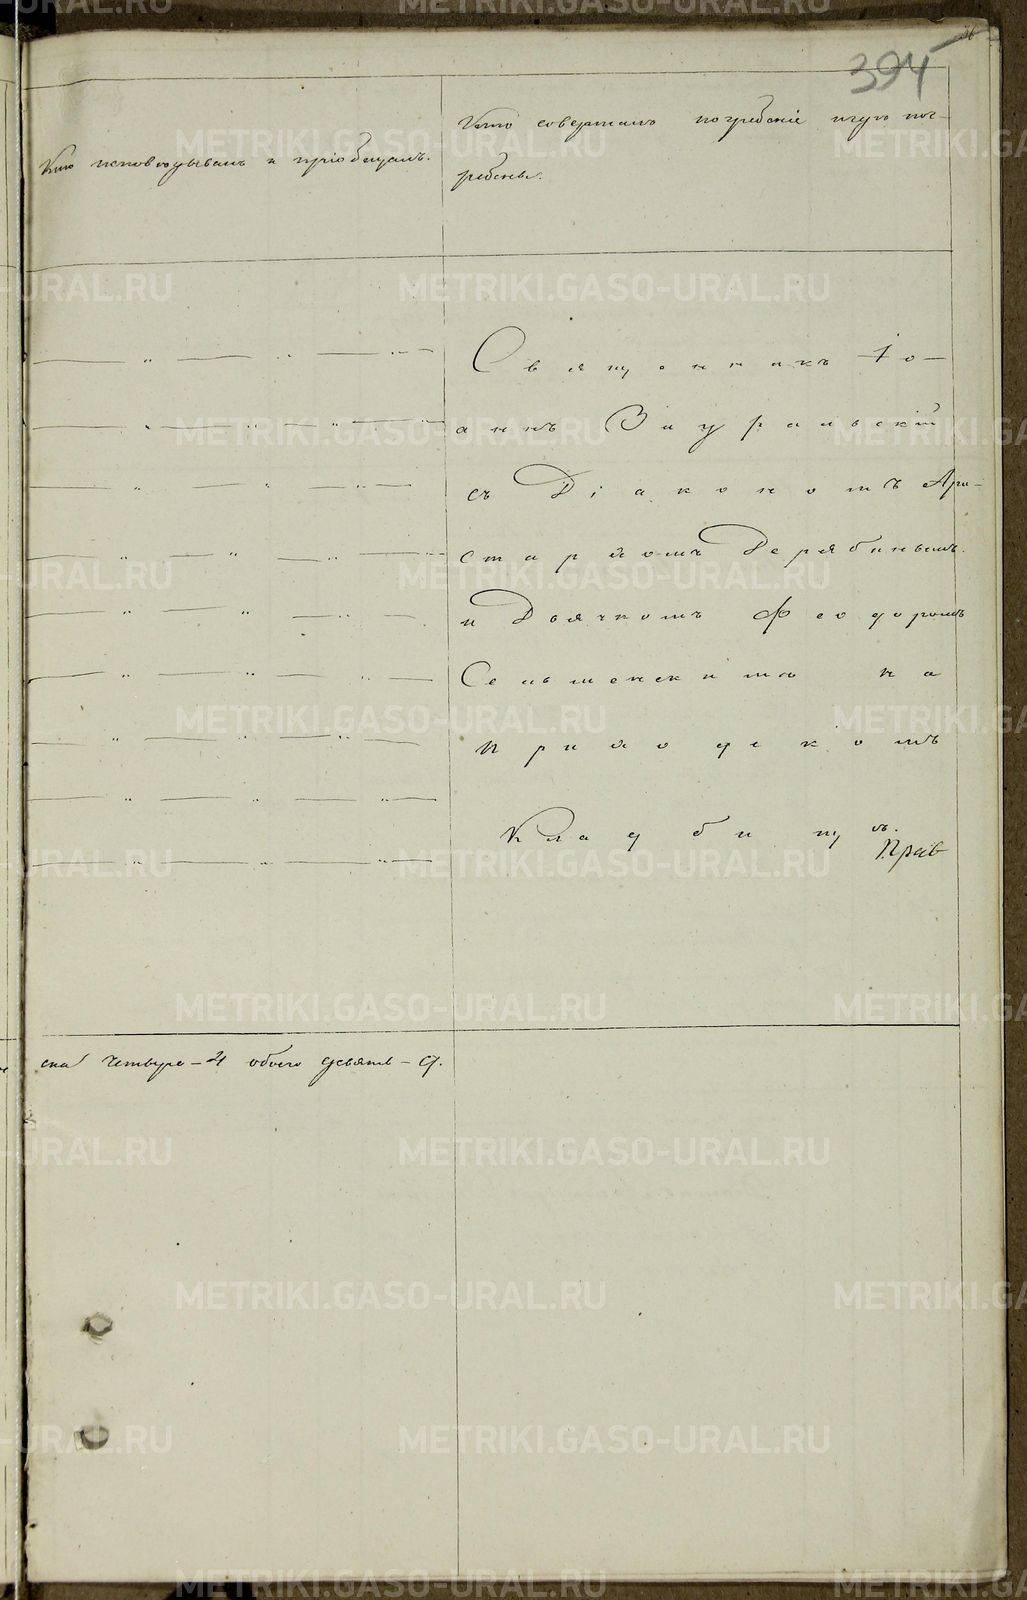 394
Кто исповѣдывалъ и пріобщалъ.
Кто совершалъ погребеніе и гдѣ пог-
ребены.
Священникъ Іо-
аннъ Заураль­скій
съ Діакономъ Ари-
стархомъ Дерябинымъ
и Дьячкомъ Ѳеодоромъ
Сельменскимъ на
приходскомъ
Кладбищѣ.
Прав
ска четыре – 4 обоего девять – 9.